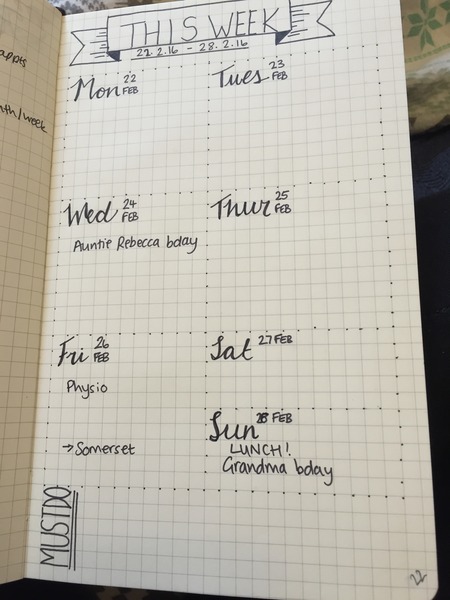 THIS WEEK
22.2.16 - 28.2.16
Mon 22 FEB
Tues 23 FEB
Wed 24 FEB
Auntie Rebecca bday
Thur 25 FEB
Fri 26 FEB
Physio
→ Somerset
Sat 27 FEB
Sun 28 FEB
LUNCH!
Grandma bday
MUST DO